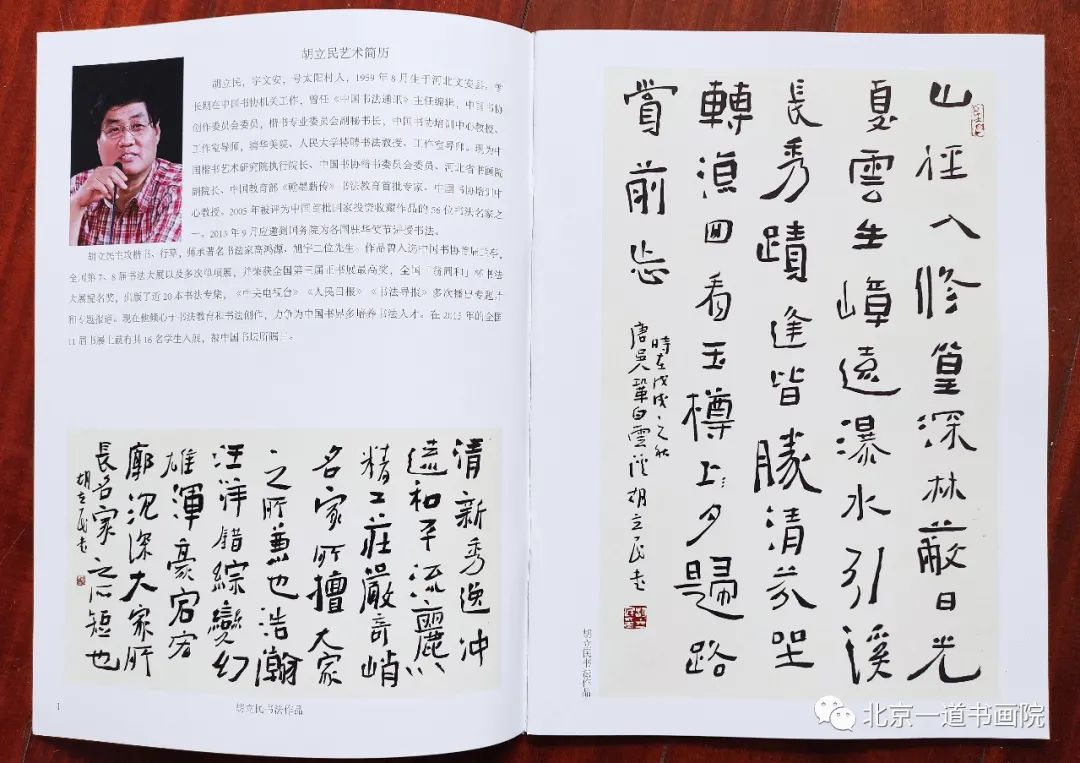 胡立民艺术简历
胡立民，字文安，号太阳村人，1959年8月生于河北文安县。
长期在中国书协机关工作，曾任《中国书法通讯》主任编辑，中国书协
创作委员会委员，楷书专业委员会副秘书长，中国书协培训中心教授、
工作室导师，清华美院、人民大学特聘书法教授、工作室导师。现为中
国楷书艺术研究院执行院长、中国书协楷书委员会委员、河北省书画院
副院长、中国教育部《翰墨薪传》书法教育首批专家、中国书协培训中
心教授。2005年被评为中国首批国家投资收藏作品的56位书法名家之
一。2013年9月应邀到国务院为各国驻华使节讲授书法。
胡立民主攻楷书、行草，师承著名书法家高鸿源、旭宇二位先生。作品曾入选中国书协
全国第7、8届书法大展以及多次单项展，并荣获全国第三届正书展最高奖，全国“翁同和”杯书法
大展提名奖，出版了近20本书法专集，《中央电视台》《人民日报》《书法导报》多次播出专题片
和专题报道。现在他倾心于书法教育和书法创作，力争为中国书界多培养书法人才。在2015年的全国
11届书展上就有其16名学生入展，被中国书坛所瞩目。
清新秀逸冲
远和平流丽
精工庄严奇峭
名家所擅大家
之所兼也浩瀚
汪洋错综变幻
雄浑豪宕
廓沉深大家所
長名家之所短也
胡立民书
1
胡立民书法作品
山径入修篁深林蔽日光
夏雲生嶂遠瀑水引溪
長秀蹟逢皆勝清芬坐
轉涼回看玉樽上夕歸路
賞前忘
時在戊戌之秋
唐吳鞏白雲溪胡立民书
胡立民书法作品
北京一道书画院